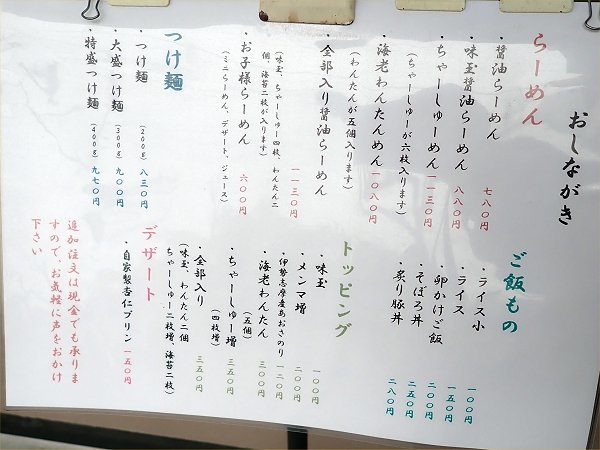 おしながき
らーめん
・醤油らーめん 七八〇円
・味玉醤油らーめん 八八〇円
・ちゃーしゅーめん 一一三〇円
（ちゃーしゅーが六枚入ります）
・海老わんたんめん 一〇八〇円
（わんたんが五個入ります）
・全部入り醤油らーめん 一一三〇円
（味玉、ちゃーしゅー四枚、わんたん二
個、海苔二枚が入ります）
・お子様らーめん 六〇〇円
（ミニらーめん、デザート、ジュース）
つけ麺
・つけ麺（200g）八三〇円
・大盛つけ麺（300g）九〇〇円
・特盛つけ麺（400g）九七〇円
ご飯もの
・ライス小 一〇〇円
・ライス 一五〇円
・卵かけご飯 二〇〇円
・そぼろ丼 二五〇円
・炙り豚丼 二八〇円
トッピング
・味玉 一〇〇円
・メンマ増 二〇〇円
・伊勢志摩産あおさのり 一二〇円
・海老わんたん 三〇〇円
（五個）
・ちゃーしゅー増 三五〇円
（四枚増）
・全部入り 三五〇円
（味玉、わんたん二個
ちゃーしゅー二枚増、海苔二枚）
デザート
・自家製杏仁プリン 一五〇円
追加注文は現金でも承りま
すので、お気軽に声をおかけ
下さい